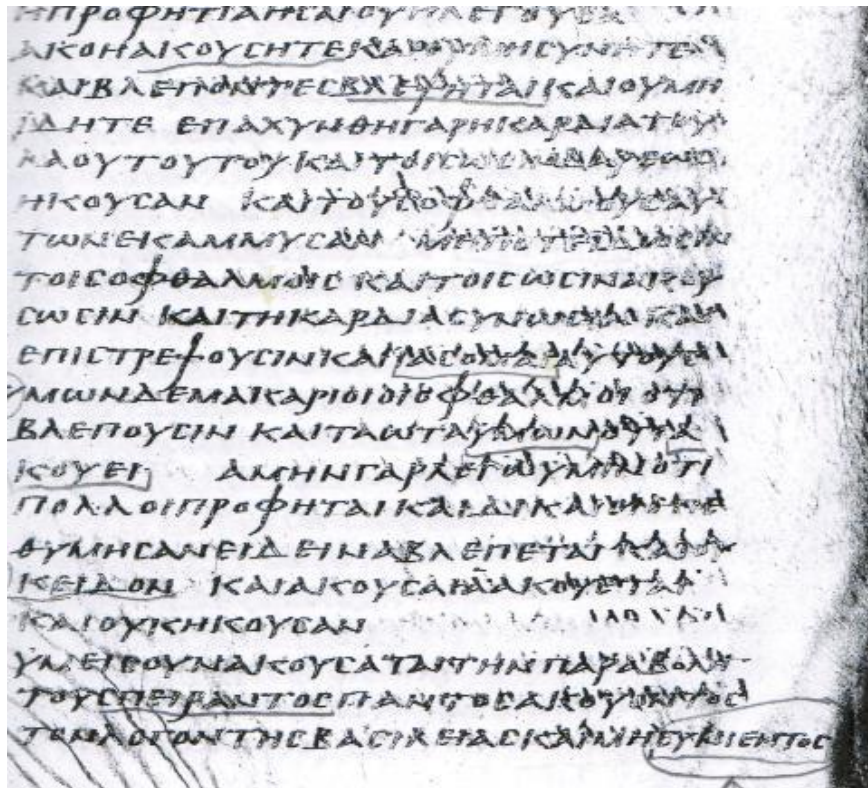 ΗΠΡΟΦΗΤΙΑΗΣΑΙΟΥΗΛΕΓΟΥΣΑ
ΑΚΟΗΑΙΚΟΥCΗΤΕΚΑΙΟΥΜΗCΥΝΗΤΕ
ΚΑΙΒΛΕΠΟΝΤΕCΒΛΕΨΗΤΑΙΚΑΙΟΥΜΗ
ΙΔΗΤΕ ΕΠΑΧΥΝΘΗΓΑΡΗΚΑΡΔΙΑΤΟΥ
ΛΑΟΥΤΟΥΤΟΥΚΑΙΤΟΙCΩCΙΝΒΑΡΕΩC
ΗΚΟΥCΑΝ ΚΑΙΤΟΥCΟΦΘΑΛΜΟΥCΑΥ
ΤΩΝΕΙΚΑΜΜΥCΑΝ ΜΗΠΟΤΕΙΔΩCΙΝ
ΤΟΙCΟΦΘΑΛΜΟΙC ΚΑΙΤΟΙCΩCΙΝΑΚΟΥ
CΩCΙΝ ΚΑΙΤΗΚΑΡΔΙΑCΥΝΩCΙΝΚΑΙ
ΕΠΙCΤΡΕΨΟΥCΙΝΚΑΙΙΑCΟΜΑΙΑΥΤΟΥC
ΜΩΝΔΕΜΑΚΑΡΙΟΙΟΙΟΦΘΑΛΜΟΙ ΟΤΙ
ΒΛΕΠΟΥCΙΝ ΚΑΙΤΑΩΤΑΥΜΩΝΟΤΙΑ
ΚΟΥΕΙ ΑΜΗΝΓΑΡΛΕΓΩΥΜΙΝΟΤΙ
ΠΟΛΛΟΙΠΡΟΦΗΤΑΙΚΑΙΔΙΚΑΙΟΙΕΠΕ
ΘΥΜΗCΑΝΕΙΔΕΙΝΑΒΛΕΠΕΤΑΙΚΑΙΟΥ
ΚΕΙΔΟΝ ΚΑΙΑΚΟΥCΑΙΑΑΚΟΥΕΤΑΙ
ΚΑΙΟΥΚΗΚΟΥCΑΝ
ΥΜΕΙCΟΥΝΑΚΟΥCΑΤΑΙΤΗΝΠΑΡΑΒΟΛΗ
ΤΟΥCΠΕΙΡΑΝΤΟCΠΑΝΤΟCΑΚΟΥΟΝΤΟC
ΤΟΝΛΟΓΟΝΤΗCΒΑCΙΛΕΙΑCΚΑΙΜΗCΥΝΙΕΝΤΟC